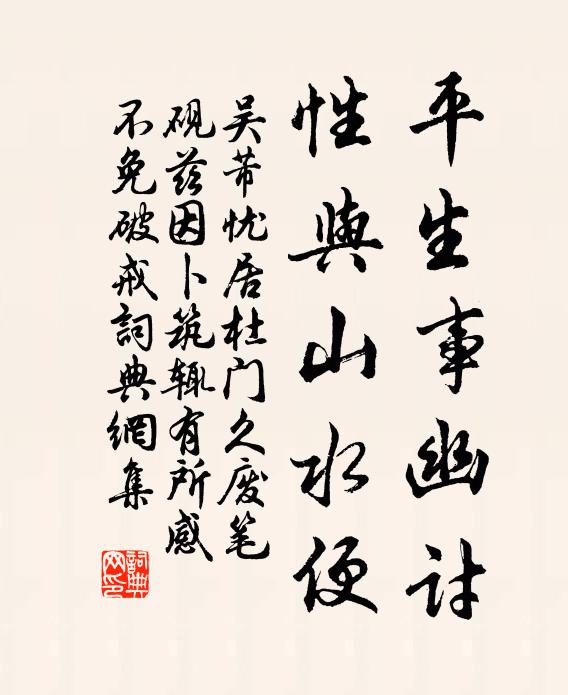 平生事幽討
性與山水便
吴芾忧居杜门久废笔
砚兹因卜筑辄有所感
不免破戒詞典網集
詞典
网印